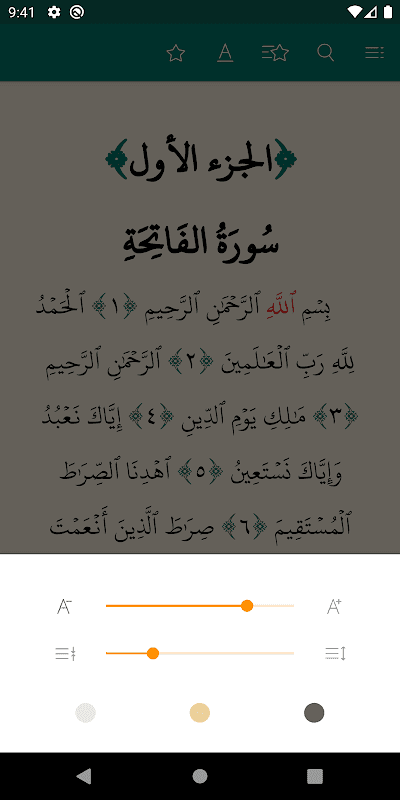 9:41
﴿الجزء الأول﴾
سُورَةُ الفَاتِحَةِ
بِسْمِ ٱللَّهِ ٱلرَّحْمَٰنِ ٱلرَّحِيمِ ﴿١﴾ ٱلْحَمْدُ
لِلَّهِ رَبِّ ٱلْعَٰلَمِينَ ﴿٢﴾ ٱلرَّحْمَٰنِ ٱلرَّحِيمِ
﴿٣﴾ مَٰلِكِ يَوْمِ ٱلدِّينِ ﴿٤﴾ إِيَّاكَ نَعْبُدُ
وَإِيَّاكَ نَسْتَعِينُ ﴿٥﴾ ٱهْدِنَا ٱلصِّرَٰطَ
ٱلْمُسْتَقِيمَ ﴿٦﴾ صِرَٰطَ ٱلَّذِينَ أَنْعَمْتَ
A- A+